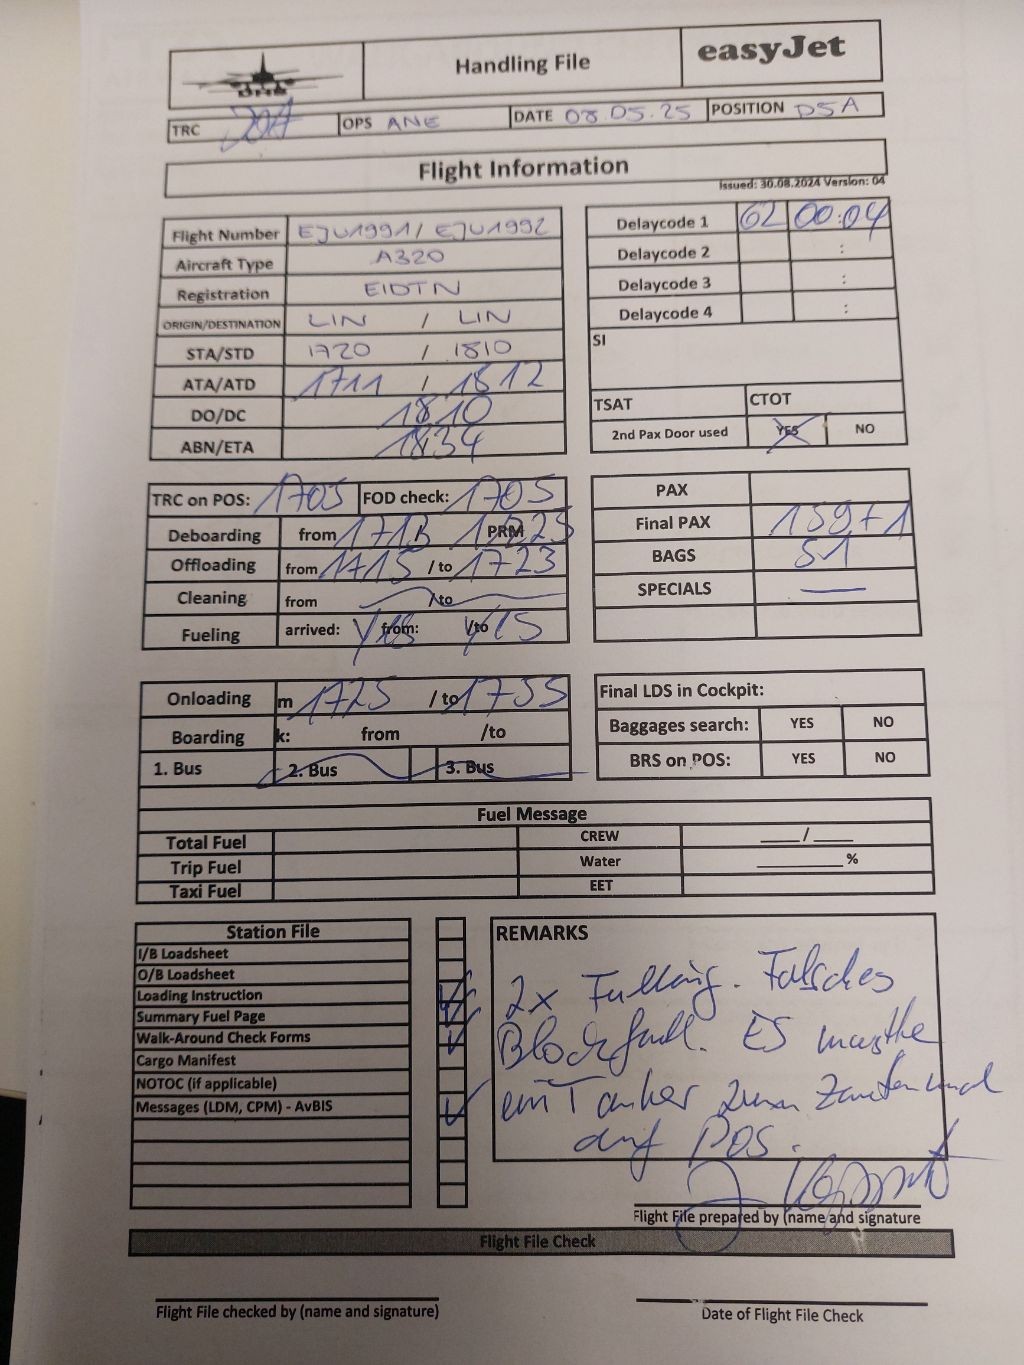 Handling File
easyJet
TRC
OPS ANE
DATE 08.05.25
POSITION D5A
Flight Information
Issued: 30.08.2024 Version: 04
Flight Number EJU1991/EJU1992
Aircraft Type A320
Registration EIDTN
ORIGIN/DESTINATION LIN / LIN
STA/STD 1720 / 1810
ATA/ATD 1711 / 1812
DO/DC 1810
ABN/ETA 1834
Delaycode 1 62 00:04
Delaycode 2 :
Delaycode 3 :
Delaycode 4 :
SI
TSAT
CTOT
2nd Pax Door used YES NO
TRC on POS: 1705 FOD check: 1705
Deboarding from 1713 PRM 1723
Offloading from 1715 / to 1723
Cleaning from /to
Fueling arrived: from: /to
PAX
Final PAX 159+1
BAGS 51
SPECIALS —
Onloading m 1725 / to 1755
Boarding k: from /to
1. Bus 2. Bus 3. Bus
Final LDS in Cockpit:
Baggages search: YES NO
BRS on POS: YES NO
Fuel Message
Total Fuel CREW ____/____
Trip Fuel Water ________%
Taxi Fuel EET
Station File
I/B Loadsheet
O/B Loadsheet
Loading Instruction
Summary Fuel Page
Walk-Around Check Forms
Cargo Manifest
NOTOC (if applicable)
Messages (LDM, CPM) - AvBIS
REMARKS
2x Fulling. Falsches
Blockfuel. ES musste
ein Tanker zum Zweiten mal
auf POS.
Flight File prepared by (name and signature
Flight File Check
Flight File checked by (name and signature)
Date of Flight File Check